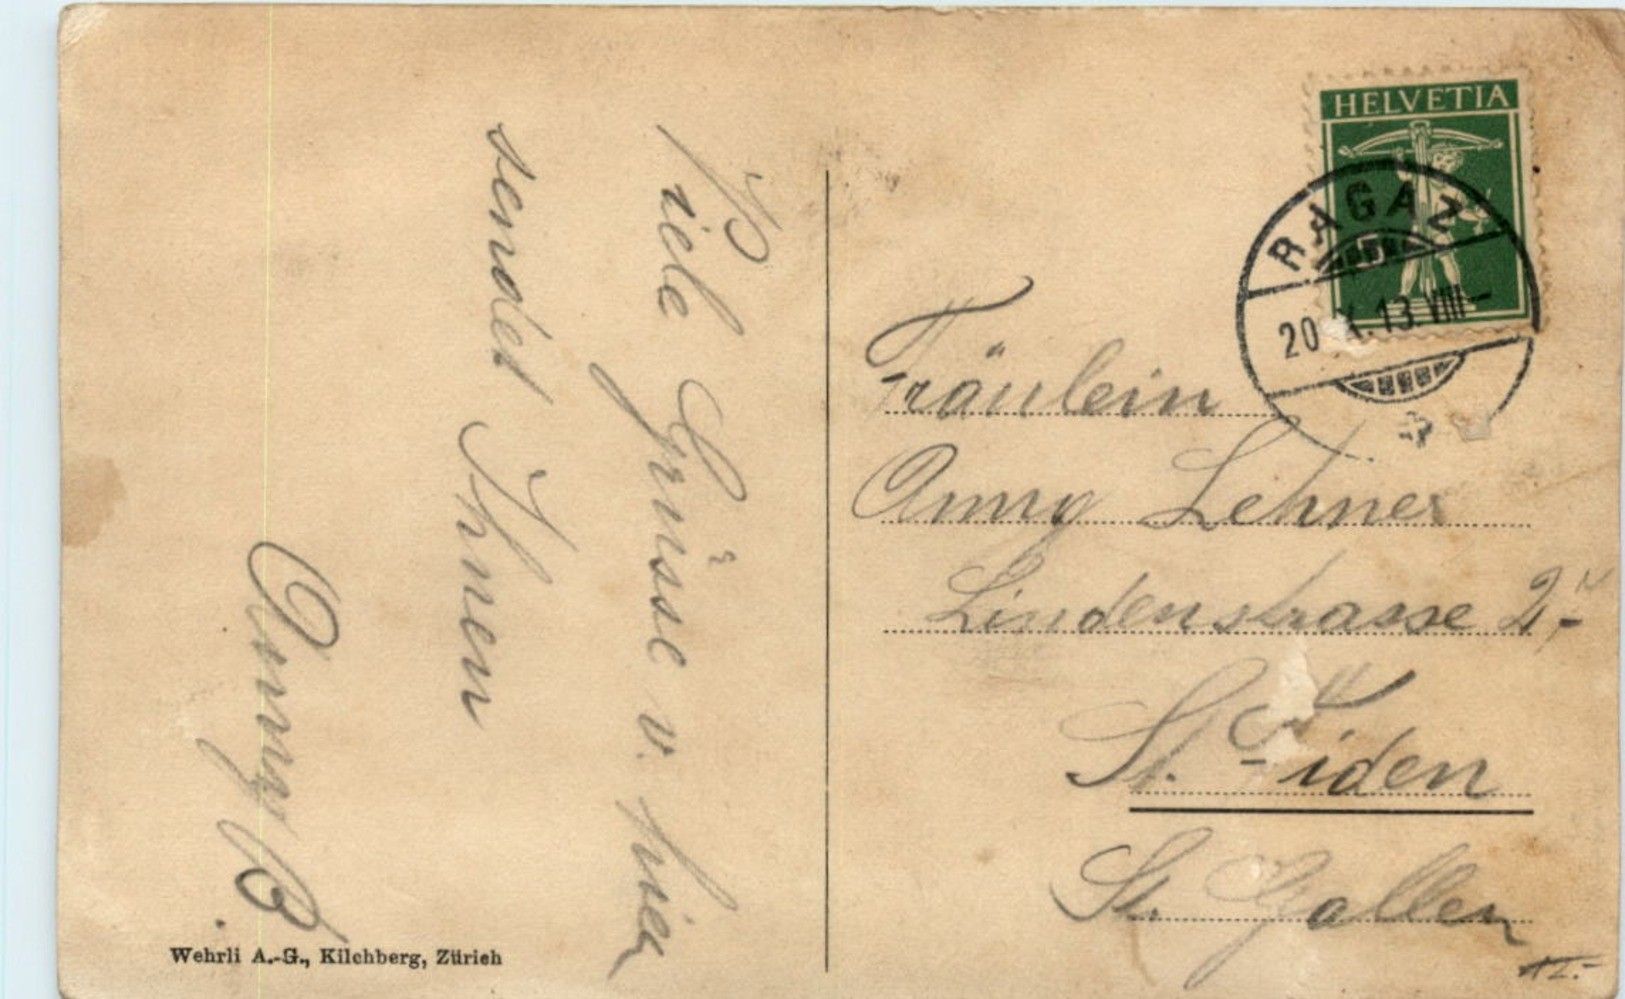 Viele Grüsse v. hier
sendet Ihnen
Anny B.
HELVETIA
RAGAZ
20. 13. VIII
Fräulein
Anny Lehner
Lindenstrasse
St. Fiden
St. Gallen
Wehrli A.-G., Kilchberg, Zürich